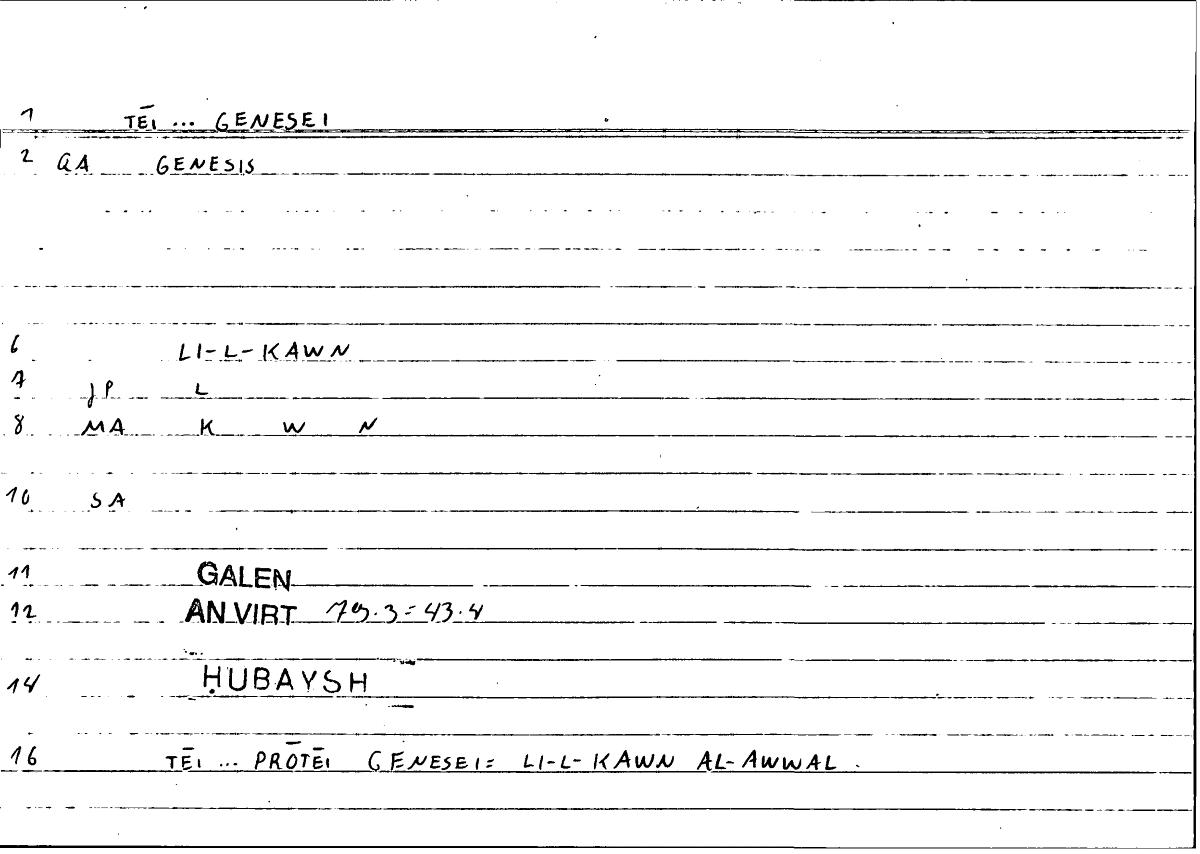 1 TĒI ... GENESEI
2 QA GENESIS
6 LI-L-KAWN
7 JP L
8 MA K W N
10 SA
11 GALEN
12 AN VIRT 79.3=43.4
14 ḤUBAYSH
16 TĒI ... PRŌTĒI GENESEI= LI-L-KAWN AL-AWWAL.